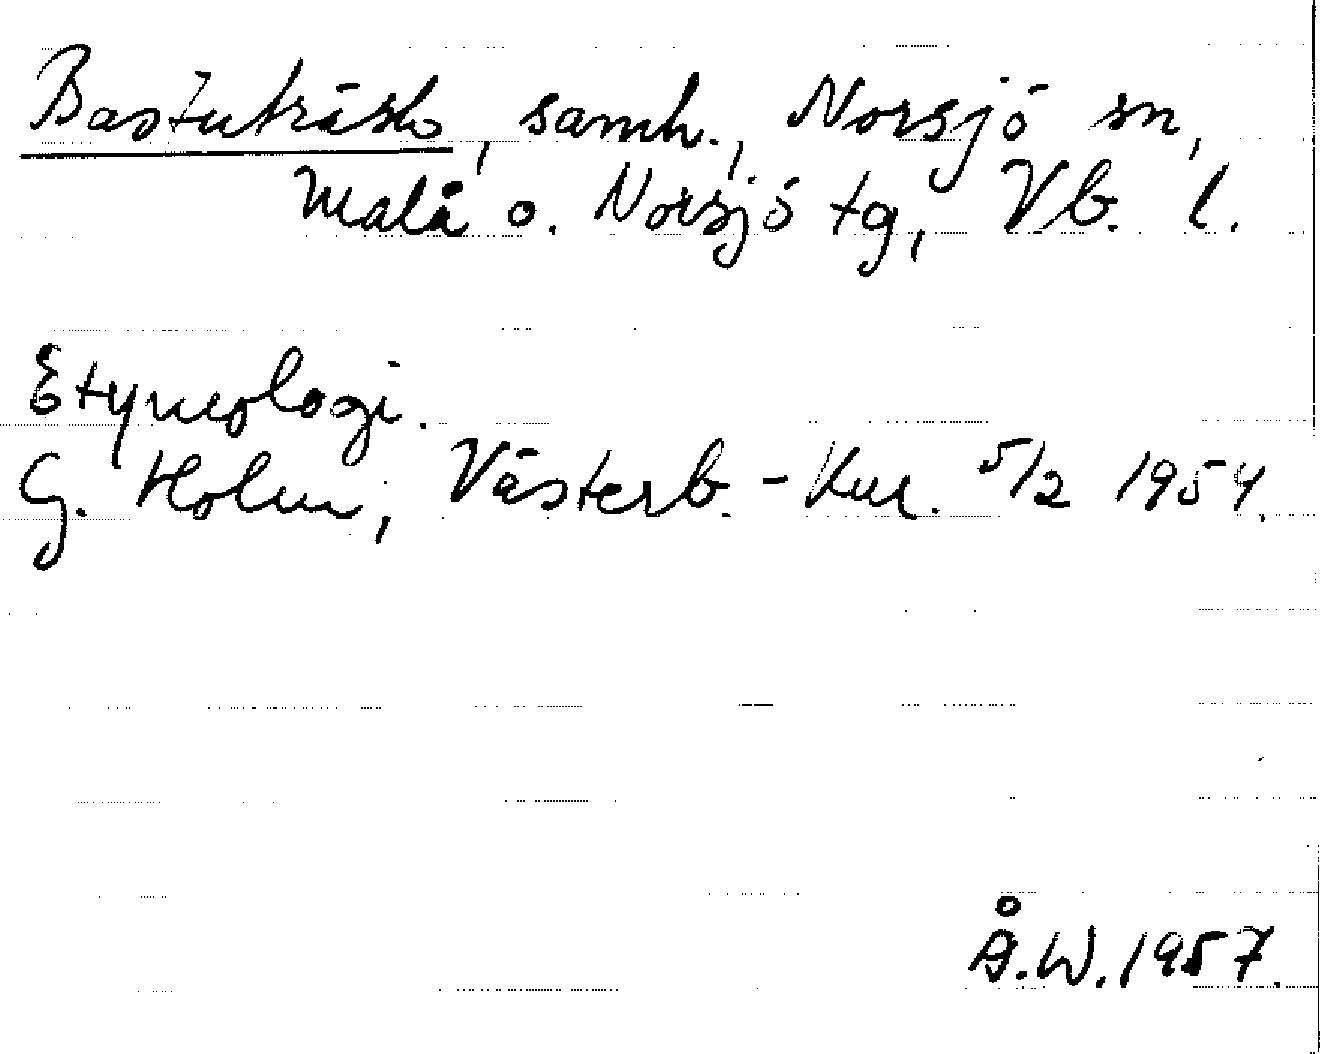 Bastuträsk, samh., Norsjö sn,
Malå o. Norsjö tg, Vb. l.
Etymologi.
G. Holm, Västerb.-Kur. 5/2 1954.
Å.W. 1957.